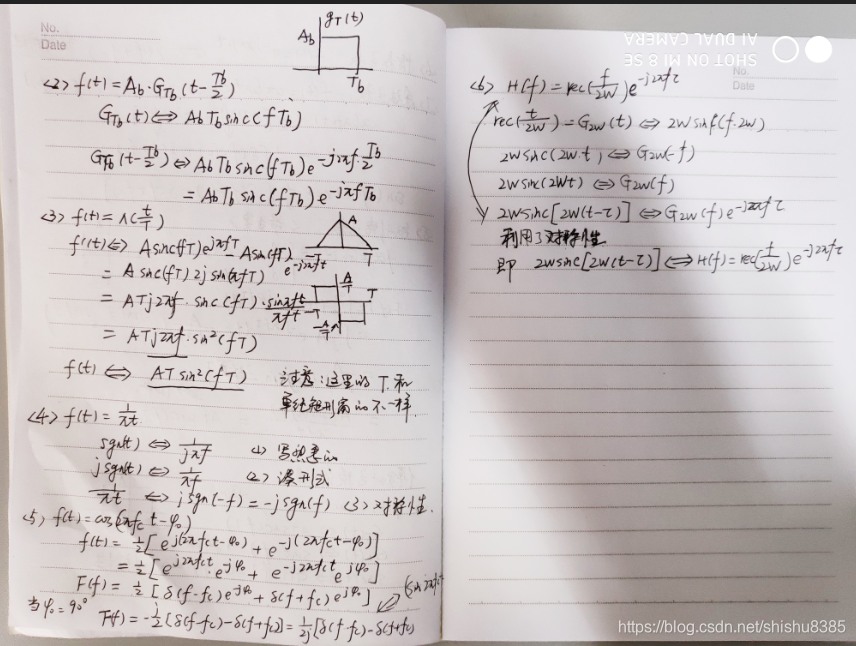 No.
Date
g_T(t)
A_b
T_b
<2> f(t) = A_b·G_{Tb}(t-\frac{T_b}{2})
G_{Tb}(t) ⇔ A_bT_b sinc(fT_b)
G_{Tb}(t-\frac{T_b}{2}) ⇔ A_bT_b sinc(fT_b)e^{-j2πf·\frac{T_b}{2}}
= A_bT_b sinc(fT_b)e^{-jπfT_b}
<3> f(t) = Λ(\frac{t}{T})
A
-T T
f'(t) ⇔ A sinc(fT)e^{jπfT} - A sinc(fT)·e^{-jπft}
= A sinc(fT)2j sin(πfT)
= ATj2πf·sinc(fT)·\frac{sinπft}{πft}
\frac{A}{T}
-T T
-\frac{A}{T}
= ATj2πf·sin²(fT)
f(t) ⇔ AT sin²(fT)
注意:这里的T和
单纯矩形窗的不一样.
<4> f(t) = \frac{1}{πt}
sgn(t) ⇔ \frac{1}{jπf} <1> 写熟悉的
jsgn(t) ⇔ \frac{1}{πf} <2> 凑形式
\frac{1}{πt} ⇔ jsgn(-f) = -jsgn(f) <3> 对称性.
<5> f(t) = cos(2πf_ct-φ_0)
f(t) = \frac{1}{2}[e^{j(2πf_ct-φ_0)} + e^{-j(2πf_ct-φ_0)}]
= \frac{1}{2}[e^{j2πf_ct}·e^{jφ_0} + e^{-j2πf_ct}e^{jφ_0}]
F(f) = \frac{1}{2}[δ(f-f_c)e^{jφ_0} + δ(f+f_c)e^{jφ_0}]
(sin2πf_ct
当φ_0=90°
F(f) = -\frac{j}{2}[δ(f-f_c)-δ(f+f_c)] = \frac{1}{2j}[δ(f-f_c)-δ(f+f_c)
SHOT ON MI 8 SE
AI DUAL CAMERA
No.
Date
<6> H(f) = rec(\frac{f}{2W})e^{-j2πfτ}
rec(\frac{t}{2W}) = G_{2W}(t) ⇔ 2W sinf(f·2W)
2Wsinc(2W·t) ⇔ G_{2W}(-f)
2Wsinc(2Wt) ⇔ G_{2W}(f)
2Wsinc[2W(t-τ)] ⇔ G_{2W}(f)e^{-j2πfτ}
利用了对称性
即 2Wsinc[2W(t-τ)] ⇔ H(f) = rec(\frac{f}{2W})e^{-j2πfτ}
https://blog.csdn.net/shishu8385